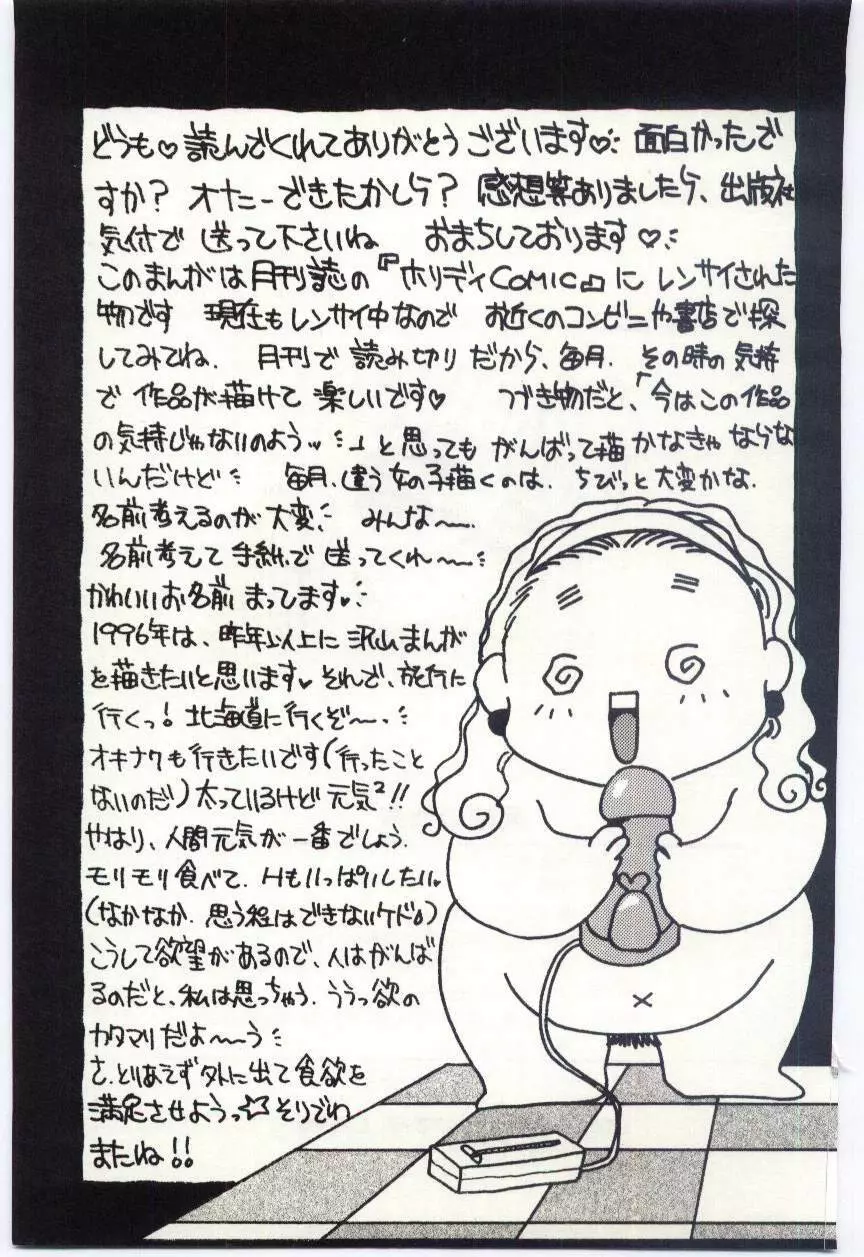 どうも♡読んでくれてありがとうございます♡ 面白かったで
すか？ オナニーできたかしら？ 感想等ありましたら、出版社
気付で 送って下さいね おまちしております♡
このまんがは月刊誌の『ホリディCOMIC』に レンサイされた
物です 現在もレンサイ中なので お近くのコンビニや書店で探
してみてね. 月刊で 読み切りだから、毎月. その時の気持
で 作品が描けて 楽しいです♡ つづき物だと、「今はこの作品
の気持じゃないのよう」と思っても がんばって描かなきゃならな
いんだけど 毎月、違う女の子描くのは. ちびっと大変かな.
名前考えるのが 大変. みんな〜.
名前考えて 手紙で 送ってくれ〜
かわいいお名前 まってます♡
1996年は、昨年以上に沢山まんが
を描きたいと思います♡それで、旅行に
行くっ! 北海道に行くぞ〜.
オキナワも行きたいです(行ったこと
ないのだ)太っているけど 元気²!!
やはり、人間元気が一番でしょう.
モリモリ食べて. Hもいっぱいしたい♡
(なかなか. 思う程はできないケド)
こうして欲望があるので、人はがんば
るのだと、私は思っちゃう. ううっ欲の
カタマリだよ〜〜う
さ、とりあえず外に出て食欲を
満足させようっ☆そりでわ
またね!!